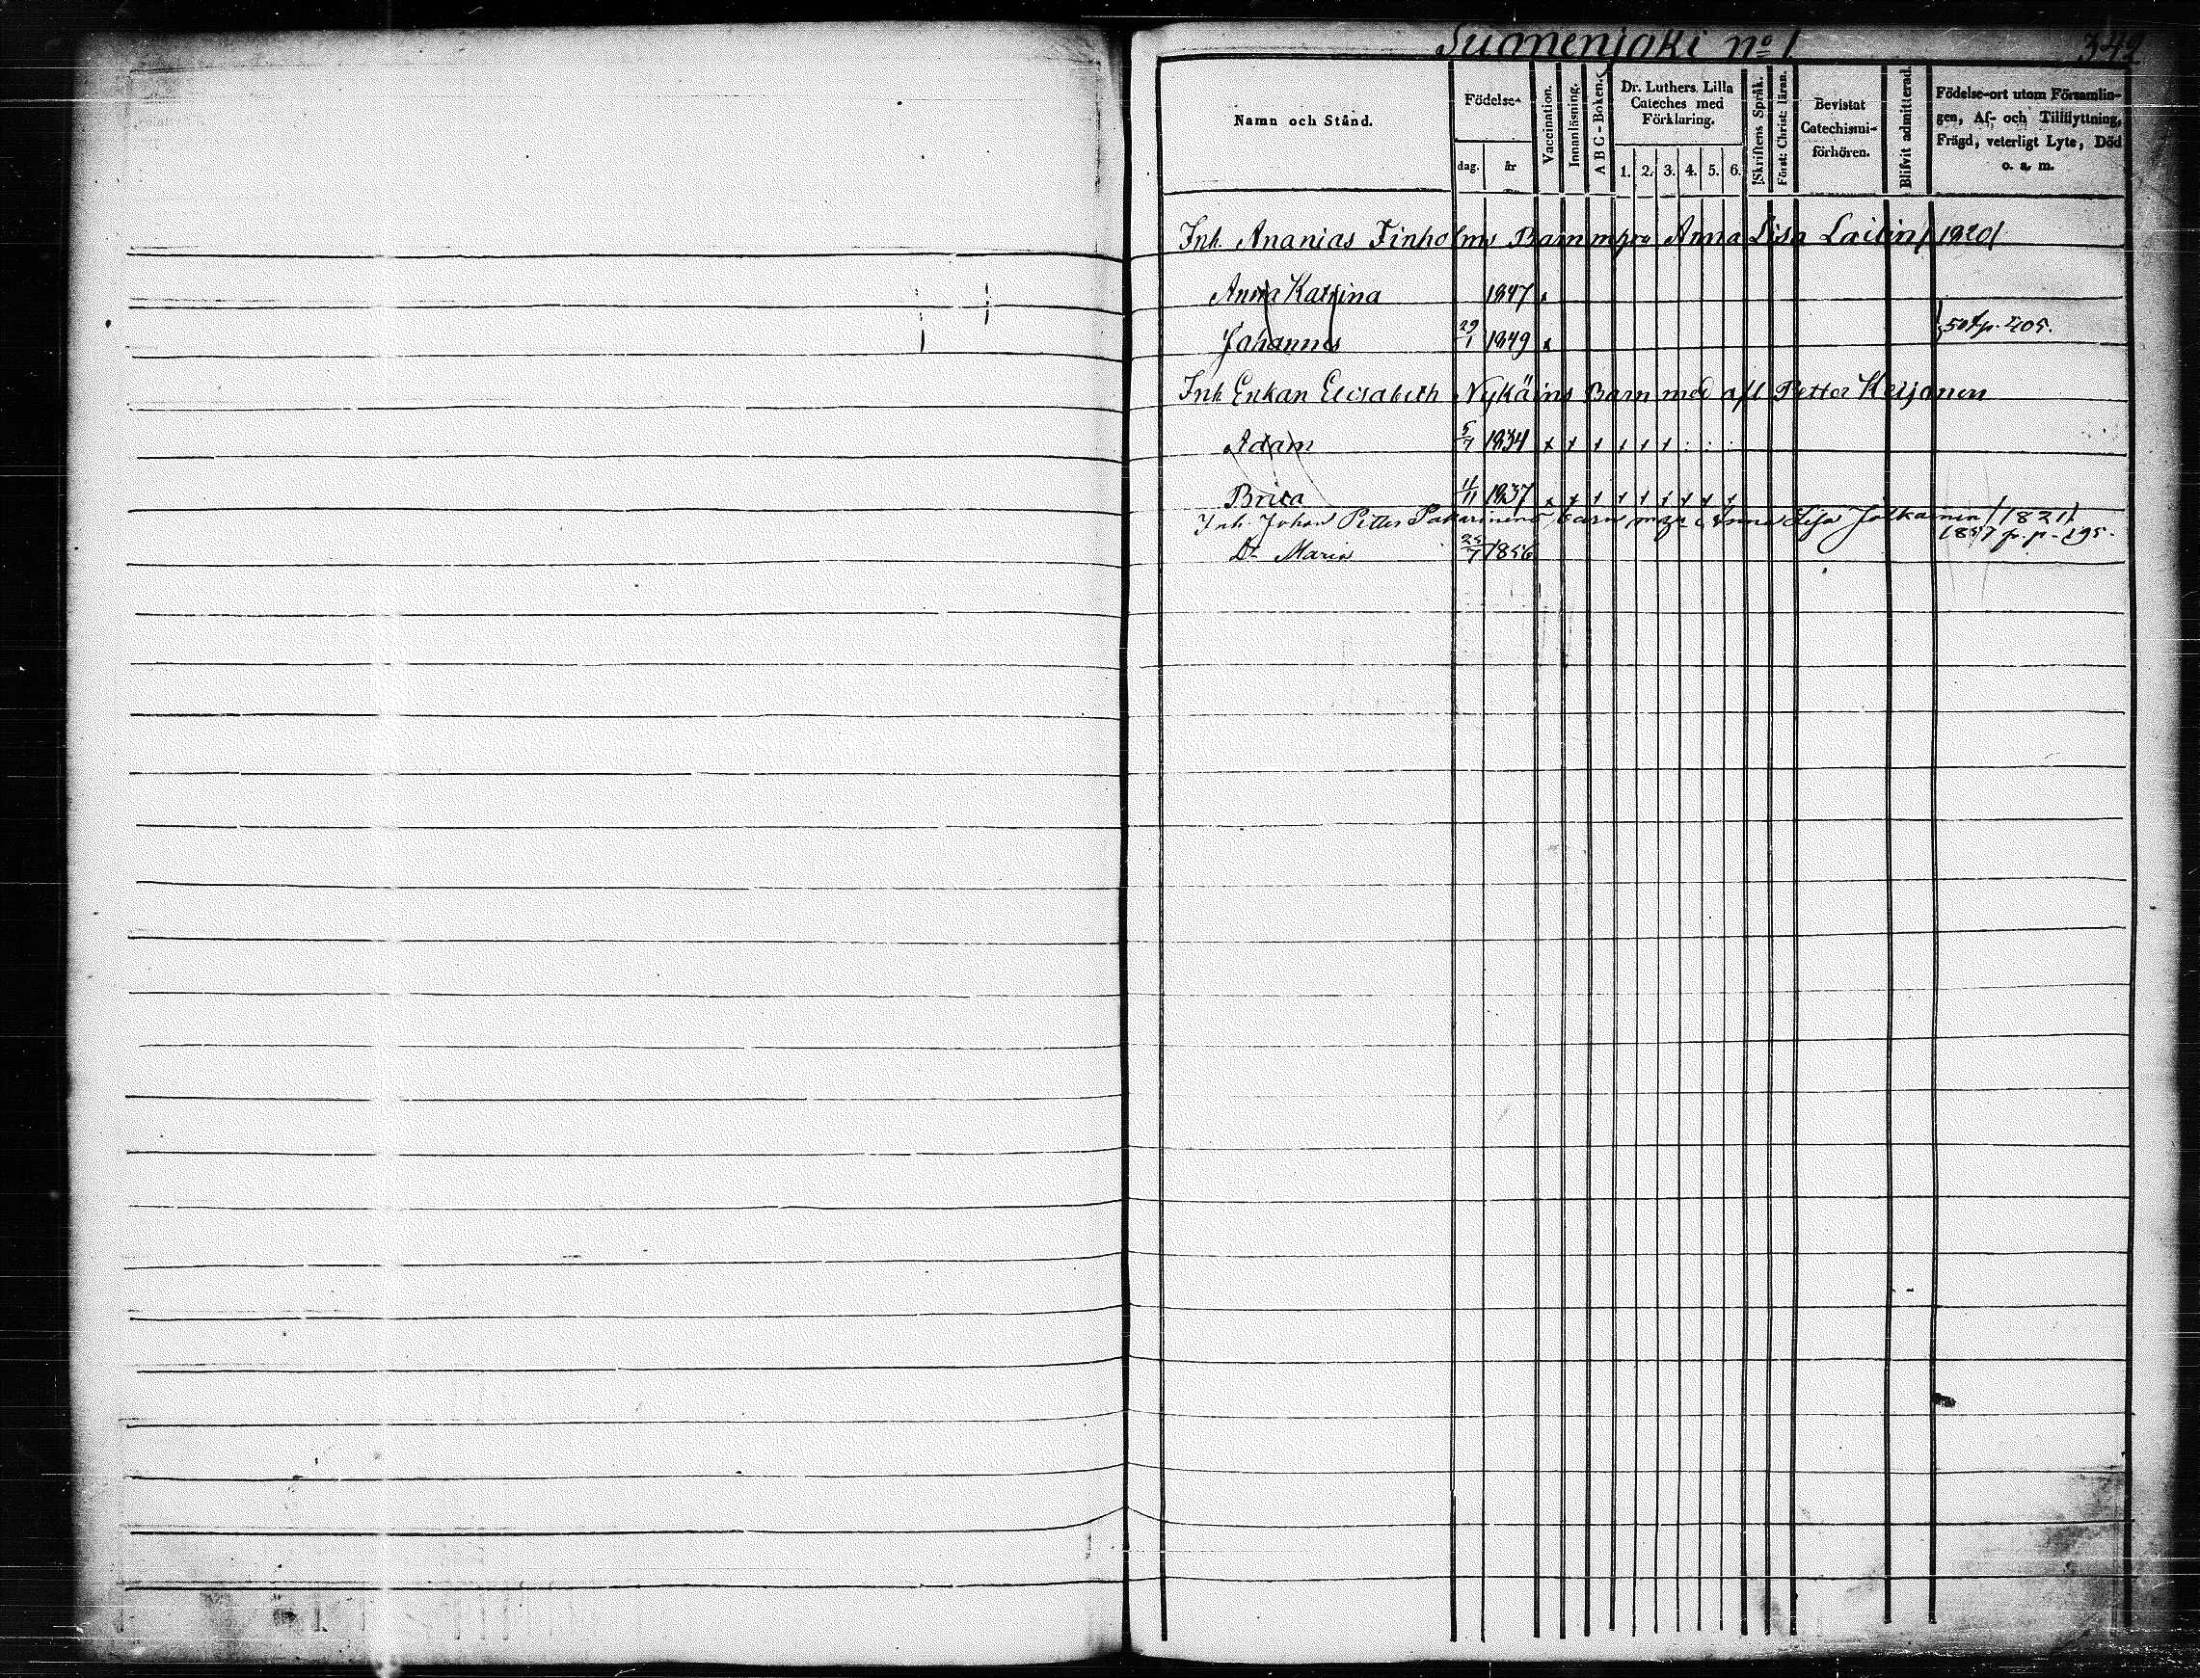 Suonenjoki no 1 342
Namn och Stånd.
Födelse-
dag. år
Vaccination.
Innanläsning.
ABC-Boken.
Dr. Luthers Lilla
Cateches med
Förklaring.
1. 2. 3. 4. 5. 6.
Skriftens Språk.
Först: Christ: läran.
Bevistat
Catechismi-
förhören.
Blifvit admitterad.
Födelse-ort utom Församlin-
gen, Af- och Tillflyttning,
Frägd, veterligt Lyte, Död
o. a. m.
Inh. Ananias Finholms Barn m Anna Lisa Laitin 1820
Anna Katrina 1847 x
Johannes 29/1 1849 x
50 p. 405.
Inh Enkan Elisabeth Nykäins Barn med afl Petter Keljonen
Adam 5/7 1834 x x x x x x
Brita 4/11 1837 x x x x x x x x x
Inh. Johan Petter Pakarinens barn m Anna Lisa Jalkanen /1821/
Dr Maria 25/7 1856 1857 p. p. 195.